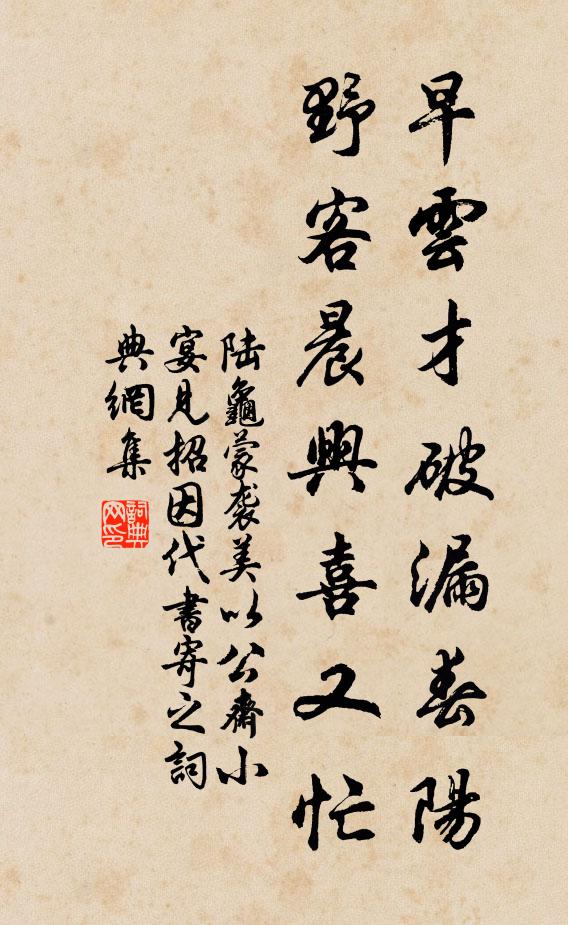 早雲才破漏春陽
野客晨興喜又忙
陆龜蒙袭美以公齋小
宴見招因代書寄之詞
典網集
詞典网印